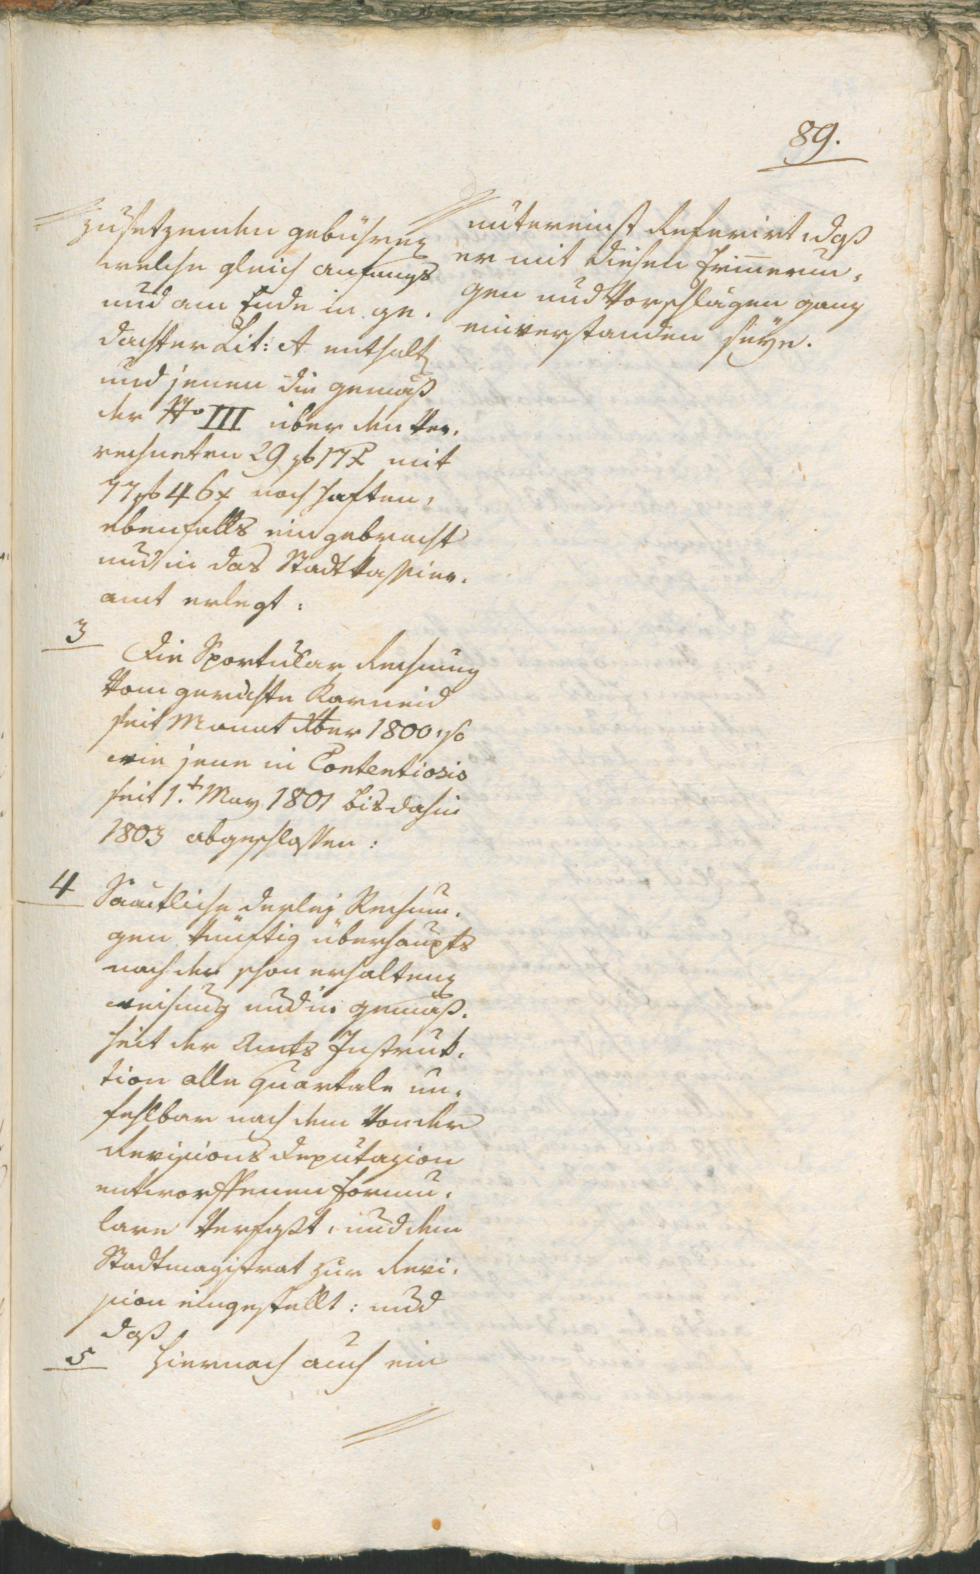 89.
zusetzenden gebühren
welche gleich anfangs
und am Ende in ge-
dachter Lit: A enthalten
und jenen die gemäß
der No III über den Ver-
rechneten 29 f 17 x mit
77 f 46 x noch haften,
ebenfalls eingebracht
und in das Stadtkassier-
amt erlegt:
3
Die Sportular Rechnung
Vom gerichte Karneid
seit Monat 1800, so
wie jene in Contentiosis
seit 1.t May 1801 bis dahin
1803 abgeschlossen:
4
Sämtliche derley Rechnun-
gen künftig überhaupts
nach der schon erhaltenen
weisung und in gemäß-
heit der Amts Instruk-
tion alle Quartale un-
fehlbar nach dem Von der
Revisions Deputazion
entworffenen Formu-
lare Verfaßt, und dem
Stadtmagistrat zur Revi-
sion eingestellt: und
daß
5
hiernach auch ein
untereinst Referirt, daß
er mit diesen Erinnerun-
gen und Vorschlägen ganz
einverstanden seye.